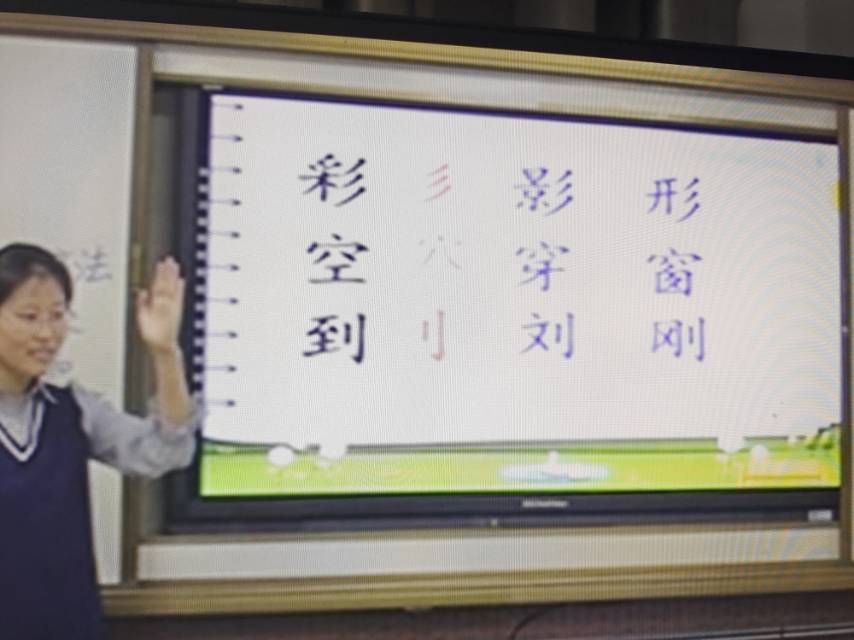 彩 彡 影 形
空 穴 穿 窗
到 刂 刘 刚
法